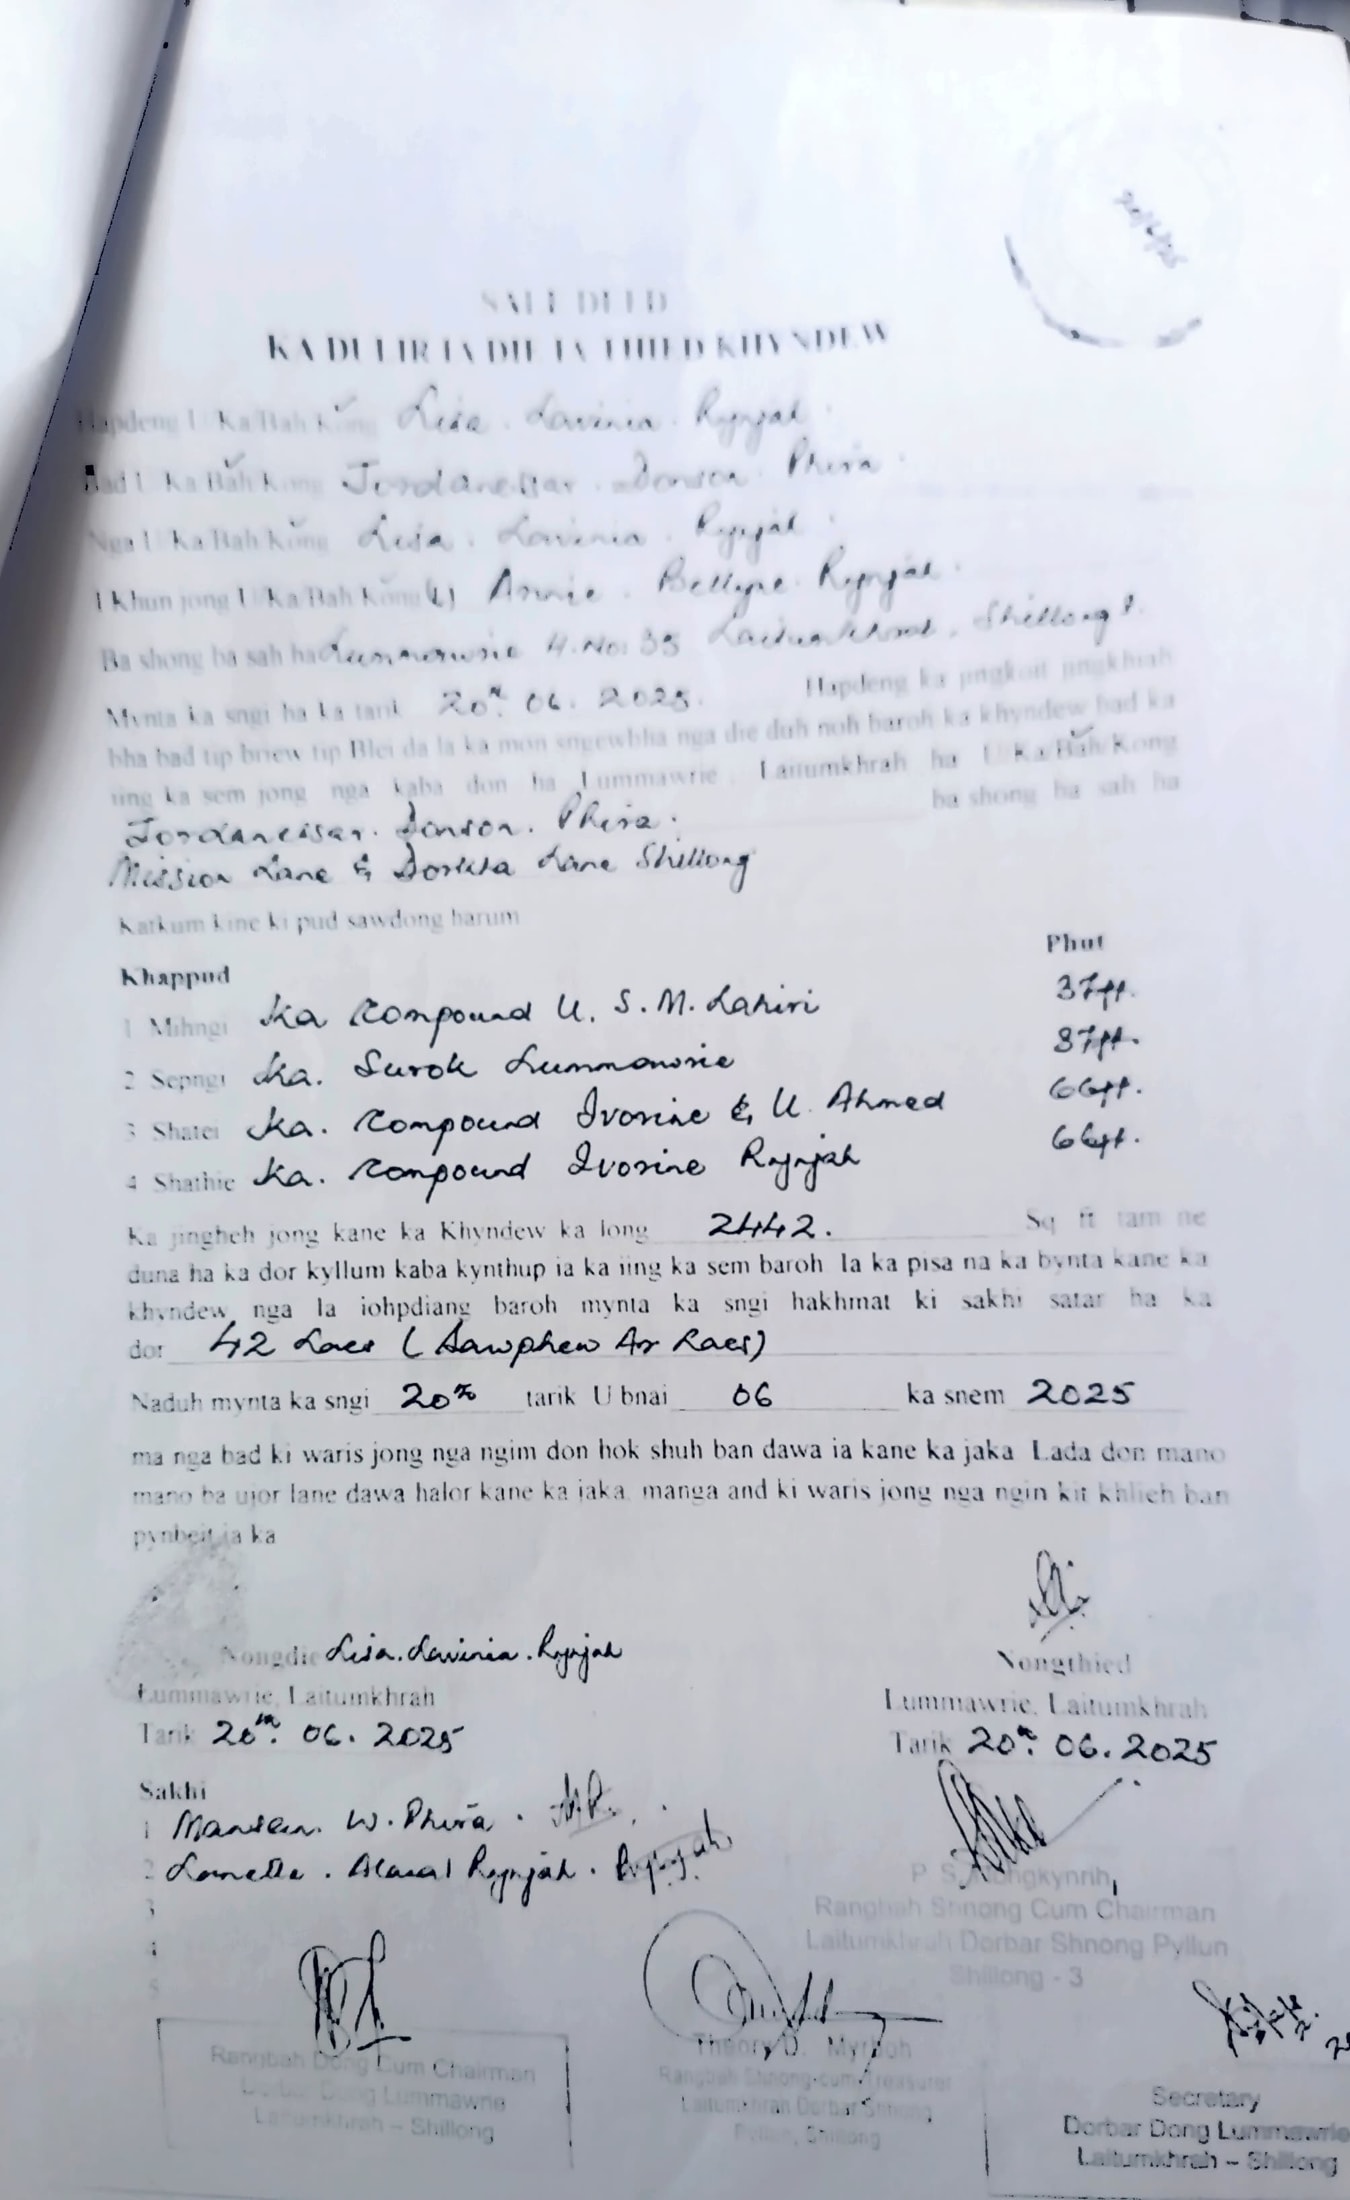 SALE DEED
KA DULIR IA DIE IA THIED KHYNDEW
Hapdeng U/Ka/Bah/Kong Lisa. Lavinia. Rynjah.
Bad U/Ka/Bah/Kong Jordaneissar. Donson. Phira.
Nga U/Ka/Bah/Kong Lisa. Lavinia. Rynjah.
I Khun jong U/Ka/Bah/Kong (L) Annie. Rynjah.
Ba shong ba sah ha Lummawrie H.No. 35 Laitumkhrah, Shillong
Mynta ka sngi ha ka tarik 20th. 06. 2025. Hapdeng ka jingkoit jingkhiah
bha bad tip briew tip Blei da la ka mon sngewbha nga die duh noh baroh ka khyndew bad ka
iing ka sem jong nga kaba don ha Lummawrie, Laitumkhrah ha U/Ka/Bah/Kong
Jordaneissar. Donson. Phira. ba shong ba sah ha
Mission Lane & Lane Shillong
Katkum kine ki pud sawdong harum
Khappud Phut
1 Mihngi Ka Compound U. S. M. Lahiri 37ft.
2 Sepngi Ka. Surok Lummawrie 37ft.
3 Shatei Ka. Compound Ivorine & U. Ahmed 66ft.
4 Shathie Ka. Compound Ivorine Rynjah 66ft.
Ka jingheh jong kane ka Khyndew ka long 2442. Sq ft tam ne
duna ha ka dor kyllum kaba kynthup ia ka iing ka sem baroh. Ia ka pisa na ka bynta kane ka
khyndew nga la iohpdiang baroh mynta ka sngi hakhmat ki sakhi satar ha ka
dor 42 Lacs (Sawphew Ar Lacs)
Naduh mynta ka sngi 20th tarik U bnai 06 ka snem 2025
ma nga bad ki waris jong nga ngim don hok shuh ban dawa ia kane ka jaka. Lada don mano
mano ba ujor lane dawa halor kane ka jaka, manga and ki waris jong nga ngin kit khlieh ban
pynbeit ia ka
Nongdie Lisa. Lavinia. Rynjah
Nongthied
Lummawrie, Laitumkhrah
Lummawrie, Laitumkhrah
Tarik 20th. 06. 2025
Tarik 20th. 06. 2025
Sakhi
1 W. Phira.
2 Rynjah. Rynjah
3
4
5
P. S. Nongkynrih,
Rangbah Shnong Cum Chairman
Laitumkhrah Dorbar Shnong Pyllun
Shillong - 3
Rangbah Dong Cum Chairman
Dorbar Dong Lummawrie
Laitumkhrah – Shillong
Theory D. Myrboh
Rangbah Shnong-cum-Treasurer
Laitumkhrah Dorbar Shnong
Pyllun, Shillong
Secretary
Dorbar Dong Lummawrie
Laitumkhrah – Shillong